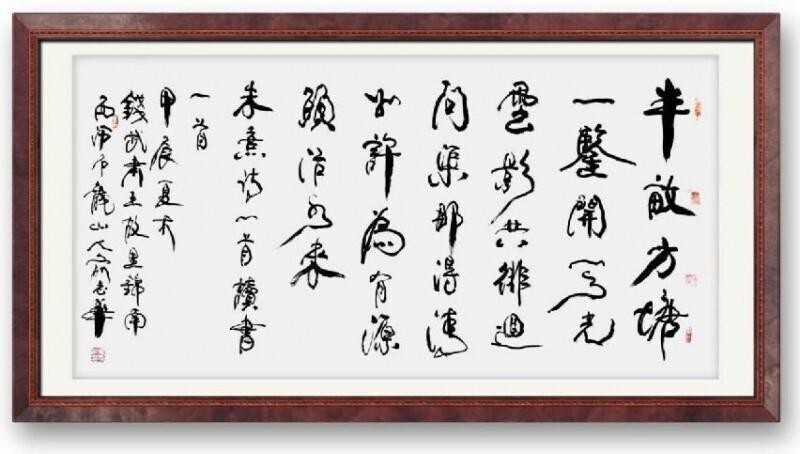 半畝方塘
一鑒開天光
雲影共徘迴
問渠那得清
如許為有源
頭活水來
朱熹詩一首讀書
一首
甲辰夏於
錢武肅王故里錦南
龍山人